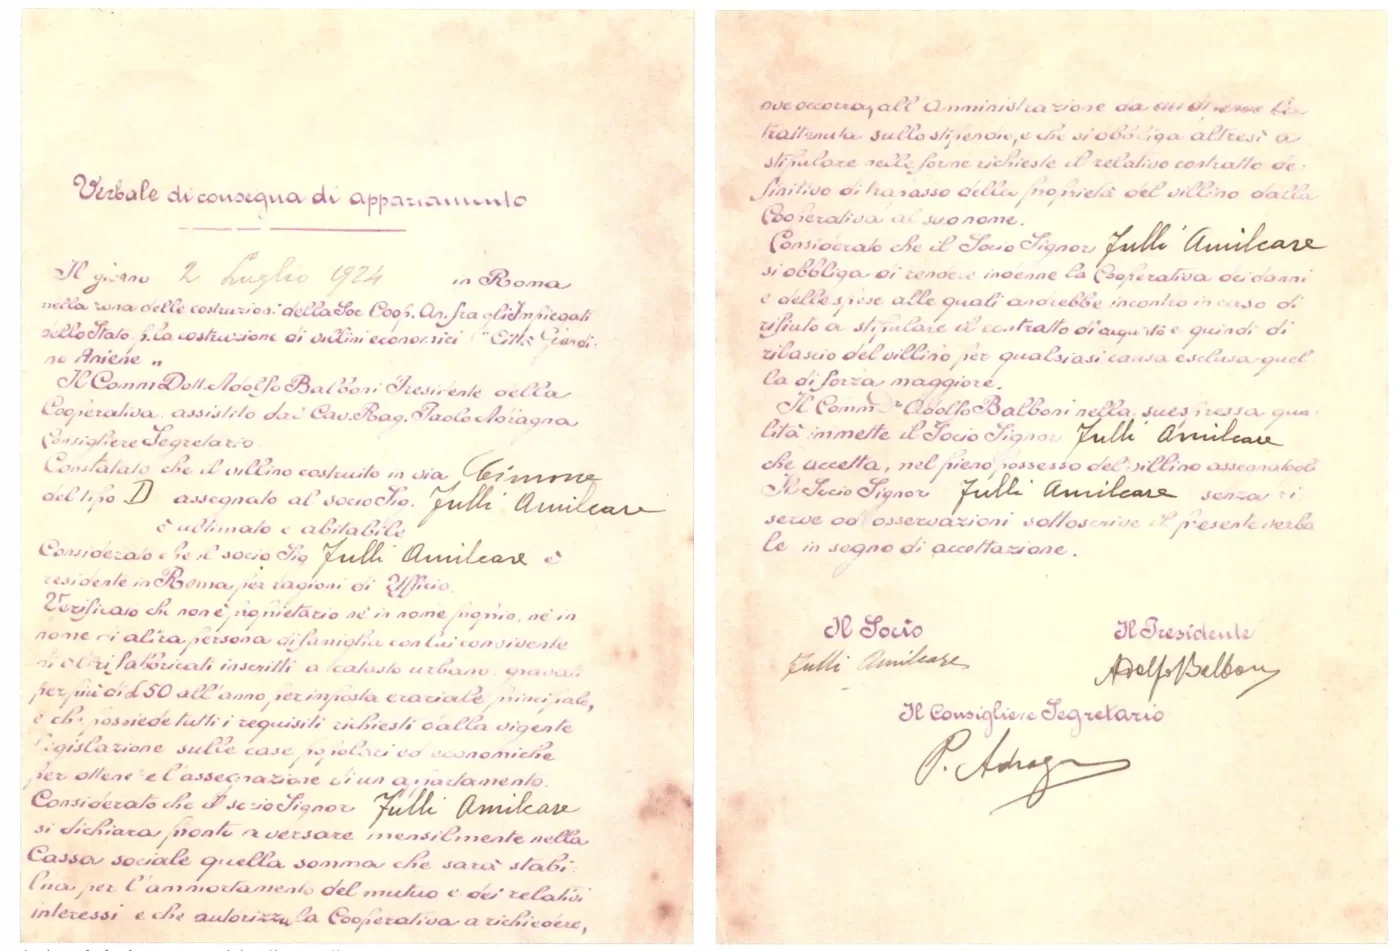 Verbale di consegna di appartamento
Il giorno 2 Luglio 1924 in Roma
nella zona delle costruzioni della Soc. Coop. An. fra gli Impiegati
dello Stato p. la costruzione di villini economici "Città Giardi-
no Aniene"
Il Comm. Dott. Adolfo Balboni Presidente della
Cooperativa, assistito dal Cav. Rag. Paolo Adragna
Consigliere Segretario
Constatato che il villino costruito in via Cimone
del tipo D assegnato al socio Sig. Julli Amilcare
è ultimato e abitabile
Considerato che il socio Sig Julli Amilcare è
residente in Roma per ragioni di Ufficio.
Verificato che non è proprietario nè in nome proprio, nè in
nome di altra persona di famiglia con lui convivente
di altri fabbricati inscritti a catasto urbano, gravati
per più di £ 50 all'anno per imposta erariale principale,
e che possiede tutti i requisiti richiesti dalla vigente
legislazione sulle case popolari ed economiche
per ottenere l'assegnazione di un appartamento.
Considerato che il socio Signor Julli Amilcare
si dichiara pronto a versare mensilmente nella
Cassa sociale quella somma che sarà stabi-
lita per l'ammortamento del mutuo e dei relativi
interessi e che autorizza la Cooperativa a richiedere,
ove occorra, all'Amministrazione da cui dipende la
trattenuta sullo stipendio, e che si obbliga altresì a
stipulare nelle forme richieste il relativo contratto de-
finitivo di trapasso della proprietà del villino dalla
Cooperativa al suo nome.
Considerato che il Socio Signor Julli Amilcare
si obbliga di rendere indenne la Cooperativa dei danni
e delle spese alle quali andrebbe incontro in caso di
rifiuto a stipulare il contratto di acquisto e quindi di
rilascio del villino per qualsiasi causa esclusa quel-
la di forza maggiore.
Il Comm. Dr Adolfo Balboni nella suespressa qua-
lità immette il Socio Signor Julli Amilcare
che accetta, nel pieno possesso del villino assegnatogli
Il Socio Signor Julli Amilcare senza ri-
serve od osservazioni sottoscrive il presente verba
le in segno di accettazione.
Il Socio Il Presidente
Julli Amilcare Adolfo Balboni
Il Consigliere Segretario
P. Adragna